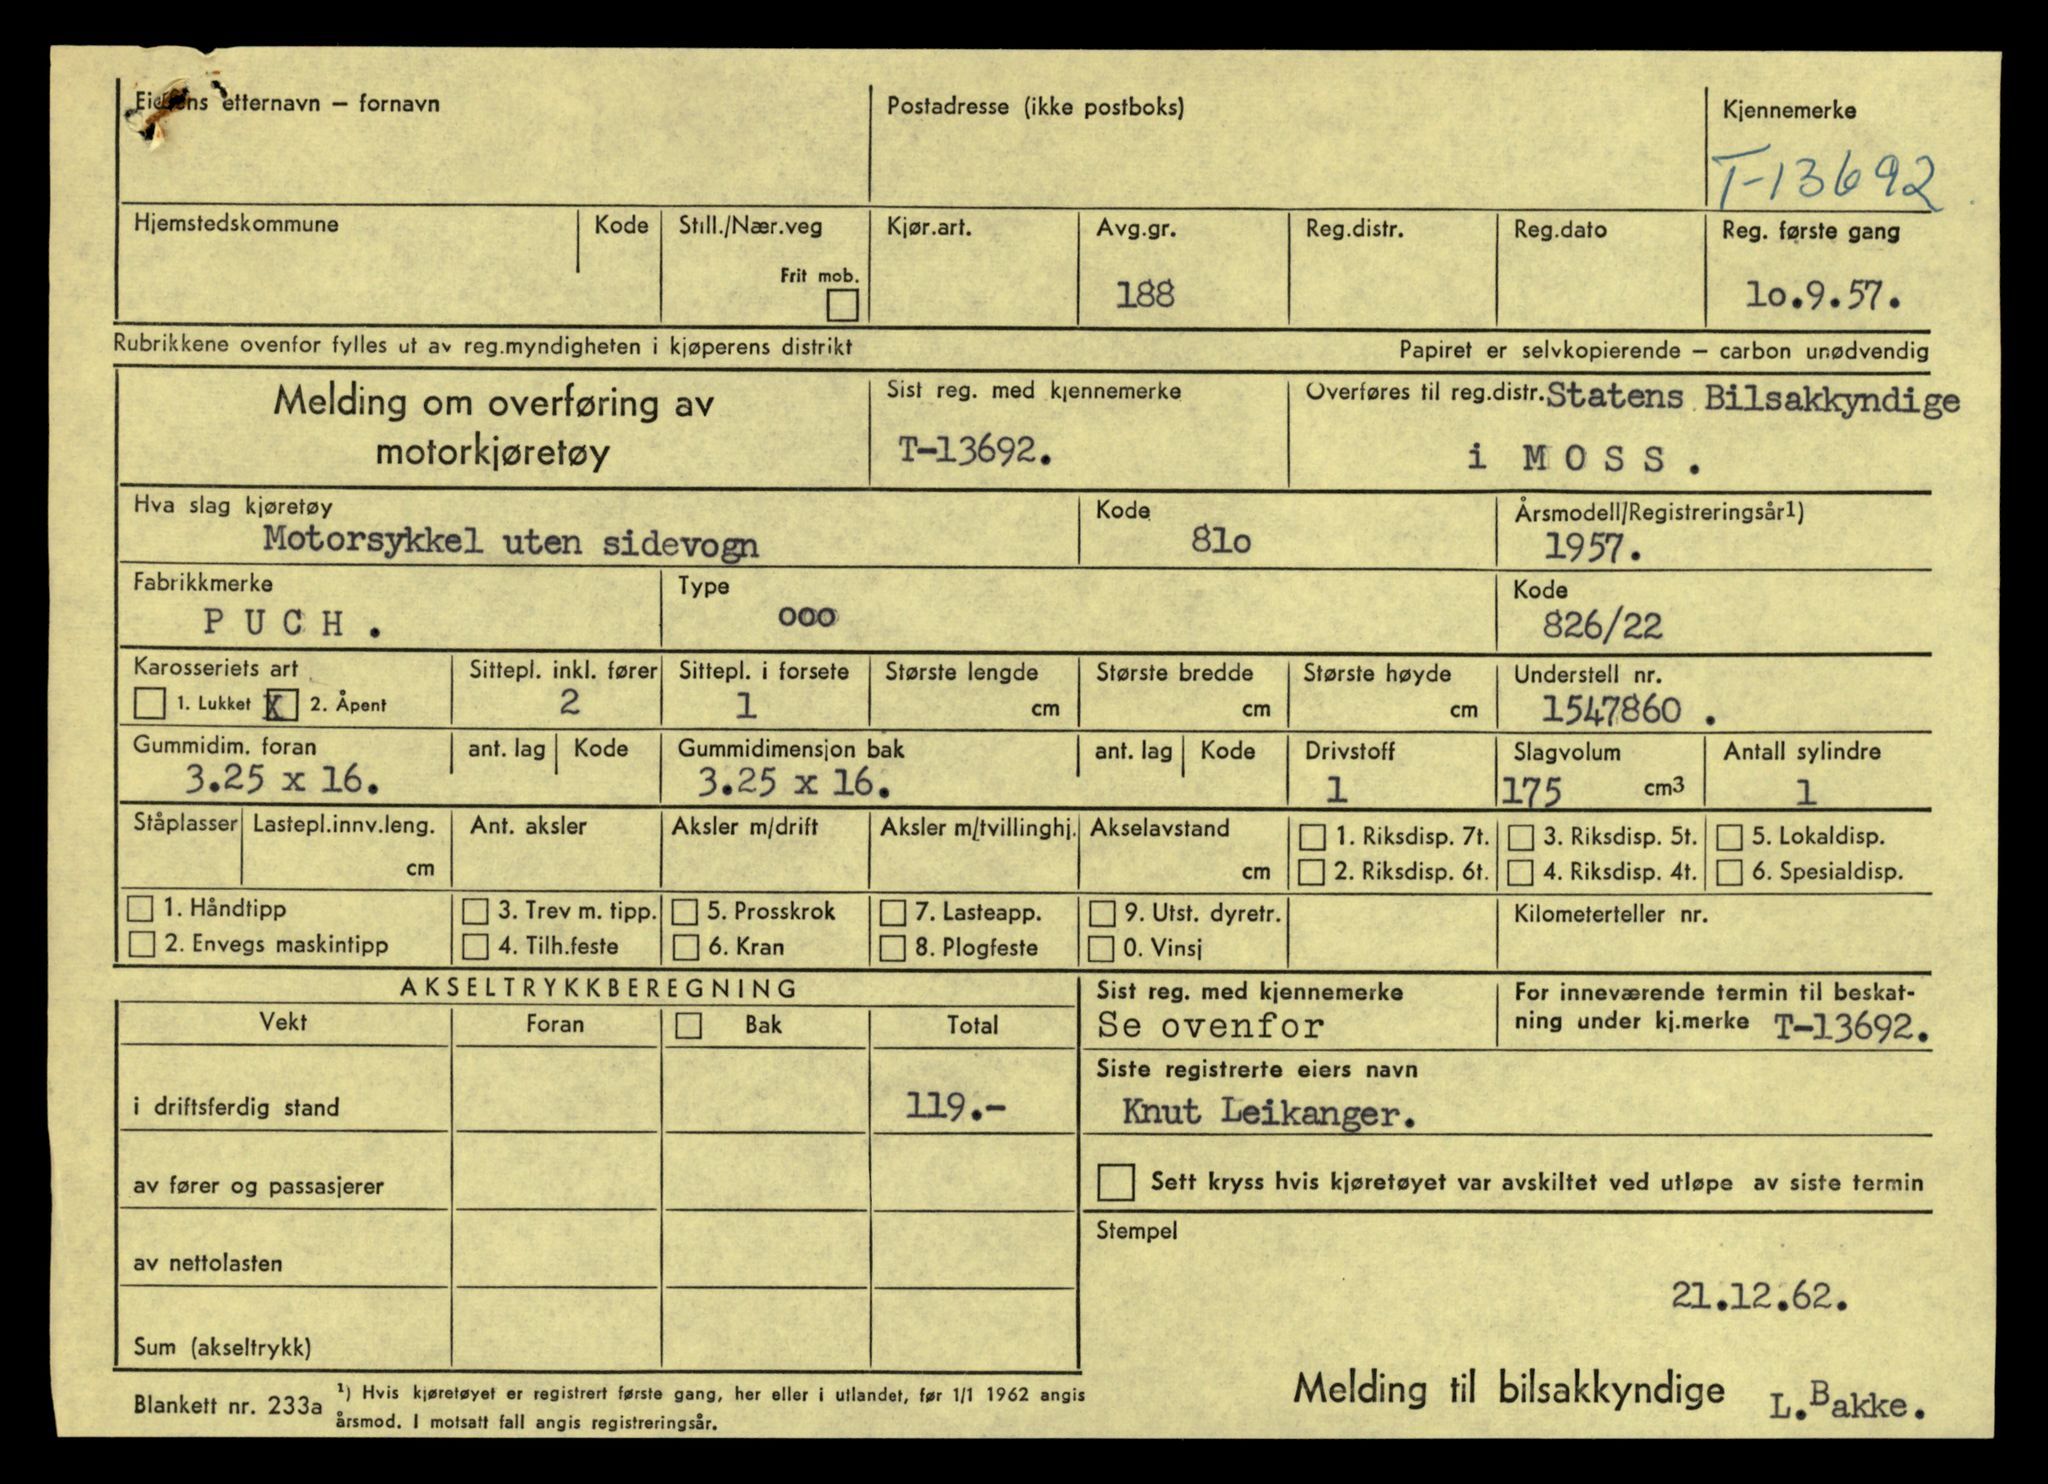 Eierens etternavn – fornavn
Postadresse (ikke postboks)
Kjennemerke
T-13692
Hjemstedskommune
Kode
Still./Nær.veg
Frit mob.
Kjør.art.
Avg.gr.
188
Reg.distr.
Reg.dato
Reg. første gang
lo.9.57.
Rubrikkene ovenfor fylles ut av reg.myndigheten i kjøperens distrikt
Papiret er selvkopierende – carbon unødvendig
Melding om overføring av
motorkjøretøy
Sist reg. med kjennemerke
T-13692.
Overføres til reg.distr. Statens Bilsakkyndige
i M O S S .
Hva slag kjøretøy
Motorsykkel uten sidevogn
Kode
81o
Årsmodell/Registreringsår1)
1957.
Fabrikkmerke
P U C H .
Type
ooo
Kode
826/22
Karosseriets art
1. Lukket X 2. Åpent
Sittepl. inkl. fører
2
Sittepl. i forsete
1
Største lengde
cm
Største bredde
cm
Største høyde
cm
Understell nr.
1547860 .
Gummidim. foran
3.25 x 16.
ant. lag
Kode
Gummidimensjon bak
3.25 x 16.
ant. lag
Kode
Drivstoff
1
Slagvolum
175 cm3
Antall sylindre
1
Ståplasser
Lastepl.innv.leng.
cm
Ant. aksler
Aksler m/drift
Aksler m/tvillinghj.
Akselavstand
cm
1. Riksdisp. 7t.
2. Riksdisp. 6t.
3. Riksdisp. 5t.
4. Riksdisp. 4t.
5. Lokaldisp.
6. Spesialdisp.
1. Håndtipp
2. Envegs maskintipp
3. Trev m. tipp.
4. Tilh.feste
5. Prosskrok
6. Kran
7. Lasteapp.
8. Plogfeste
9. Utst. dyretr.
0. Vinsj
Kilometerteller nr.
AKSELTRYKKBEREGNING
Vekt
Foran
Bak
Total
i driftsferdig stand
119.-
av fører og passasjerer
av nettolasten
Sum (akseltrykk)
Sist reg. med kjennemerke
Se ovenfor
For inneværende termin til beskat-
ning under kj.merke T-13692.
Siste registrerte eiers navn
Knut Leikanger.
Sett kryss hvis kjøretøyet var avskiltet ved utløpe av siste termin
Stempel
21.12.62.
Melding til bilsakkyndige
L.Bakke.
Blankett nr. 233a
1) Hvis kjøretøyet er registrert første gang, her eller i utlandet, før 1/1 1962 angis
årsmod. I motsatt fall angis registreringsår.